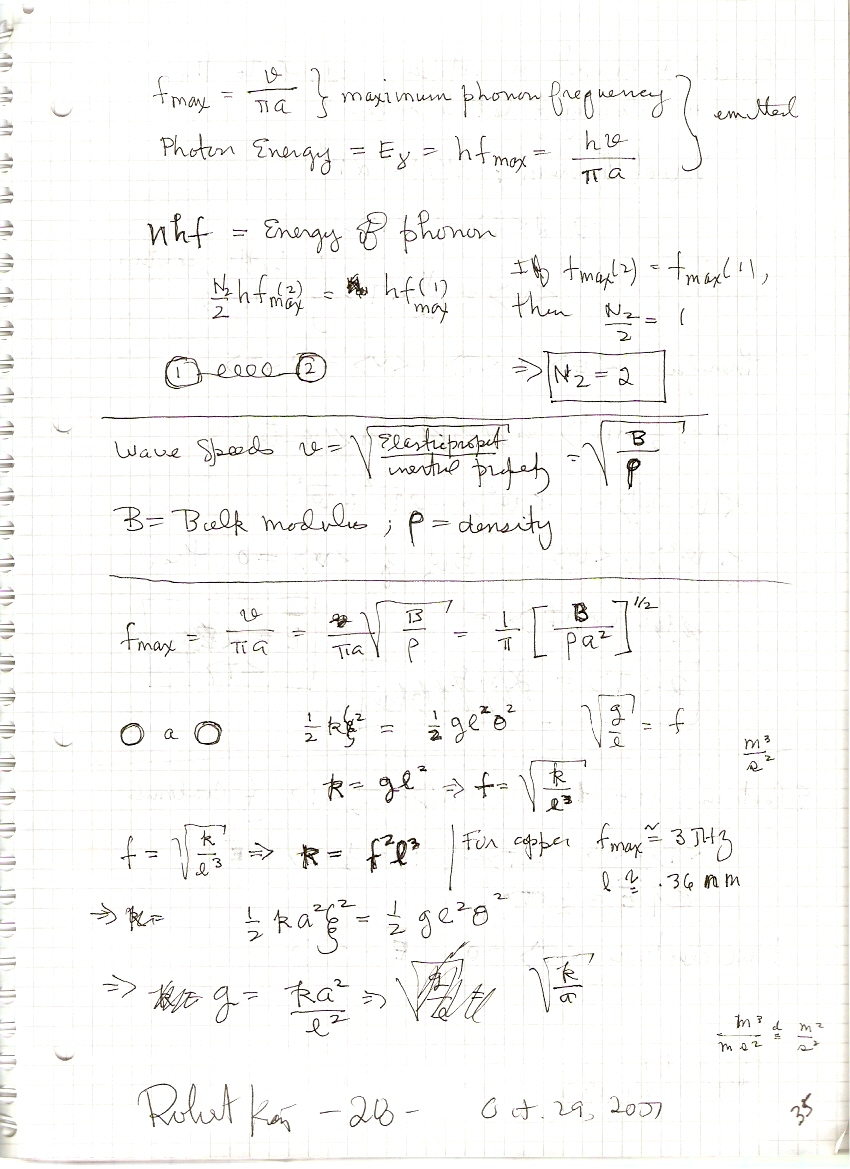 fmax = v/πa } maximum phonon frequency } emitted
Photon Energy = Eγ = hfmax = hv/πa
nhf = Energy of phonon
N₂/2 hf(2)max = hf(1)max
If fmax(2) = fmax(1),
then N₂/2 = 1
① ②
⇒ N₂ = 2
Wave Speeds v = √(Elastic propert/inertial property) = √(B/ρ)
B = Bulk modulus ; ρ = density
fmax = v/πa = /πa √(B/ρ) = 1/π [B/ρa²]^1/2
O a O
½ kξ² = ½ gl²θ²
√(g/l) = f
m³/s²
k = gl² ⇒ f = √(k/l³)
f = √(k/l³) ⇒ k = f²l³
For copper fmax ≈ 3 THz
l ≅ .36 nm
⇒ k =
½ ka²ξ² = ½ gl²θ²
⇒ g = ka²/l² ⇒ √(k/a)
Oct. 29, 2007
- 28 -
35